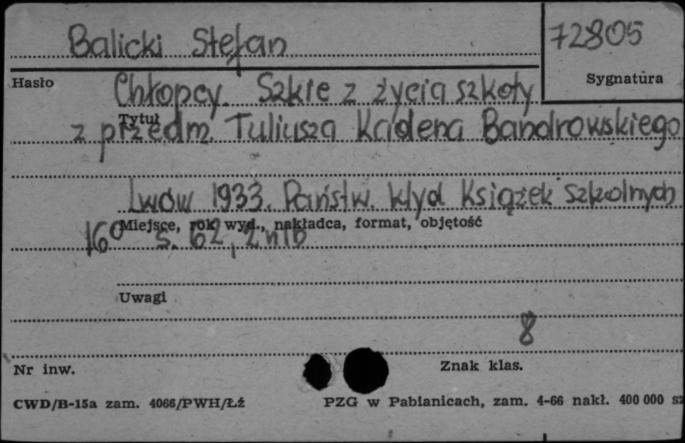 Balicki Stefan
72805
Hasło
Sygnatura
Chłopcy. Szkic z życia szkoły
Tytuł
z przedm. Juliusza Kadena Bandrowskiego
Lwów 1933. Państw. Wyd Książek Szkolnych
Miejsce, rok wyd., nakładca, format, objętość
16° s. 62, 2 nlb
Uwagi
8
Nr inw.
Znak klas.
CWD/B-15a zam. 4066/PWH/Łż
PZG w Pabianicach, zam. 4-66 nakł. 400 000 sz